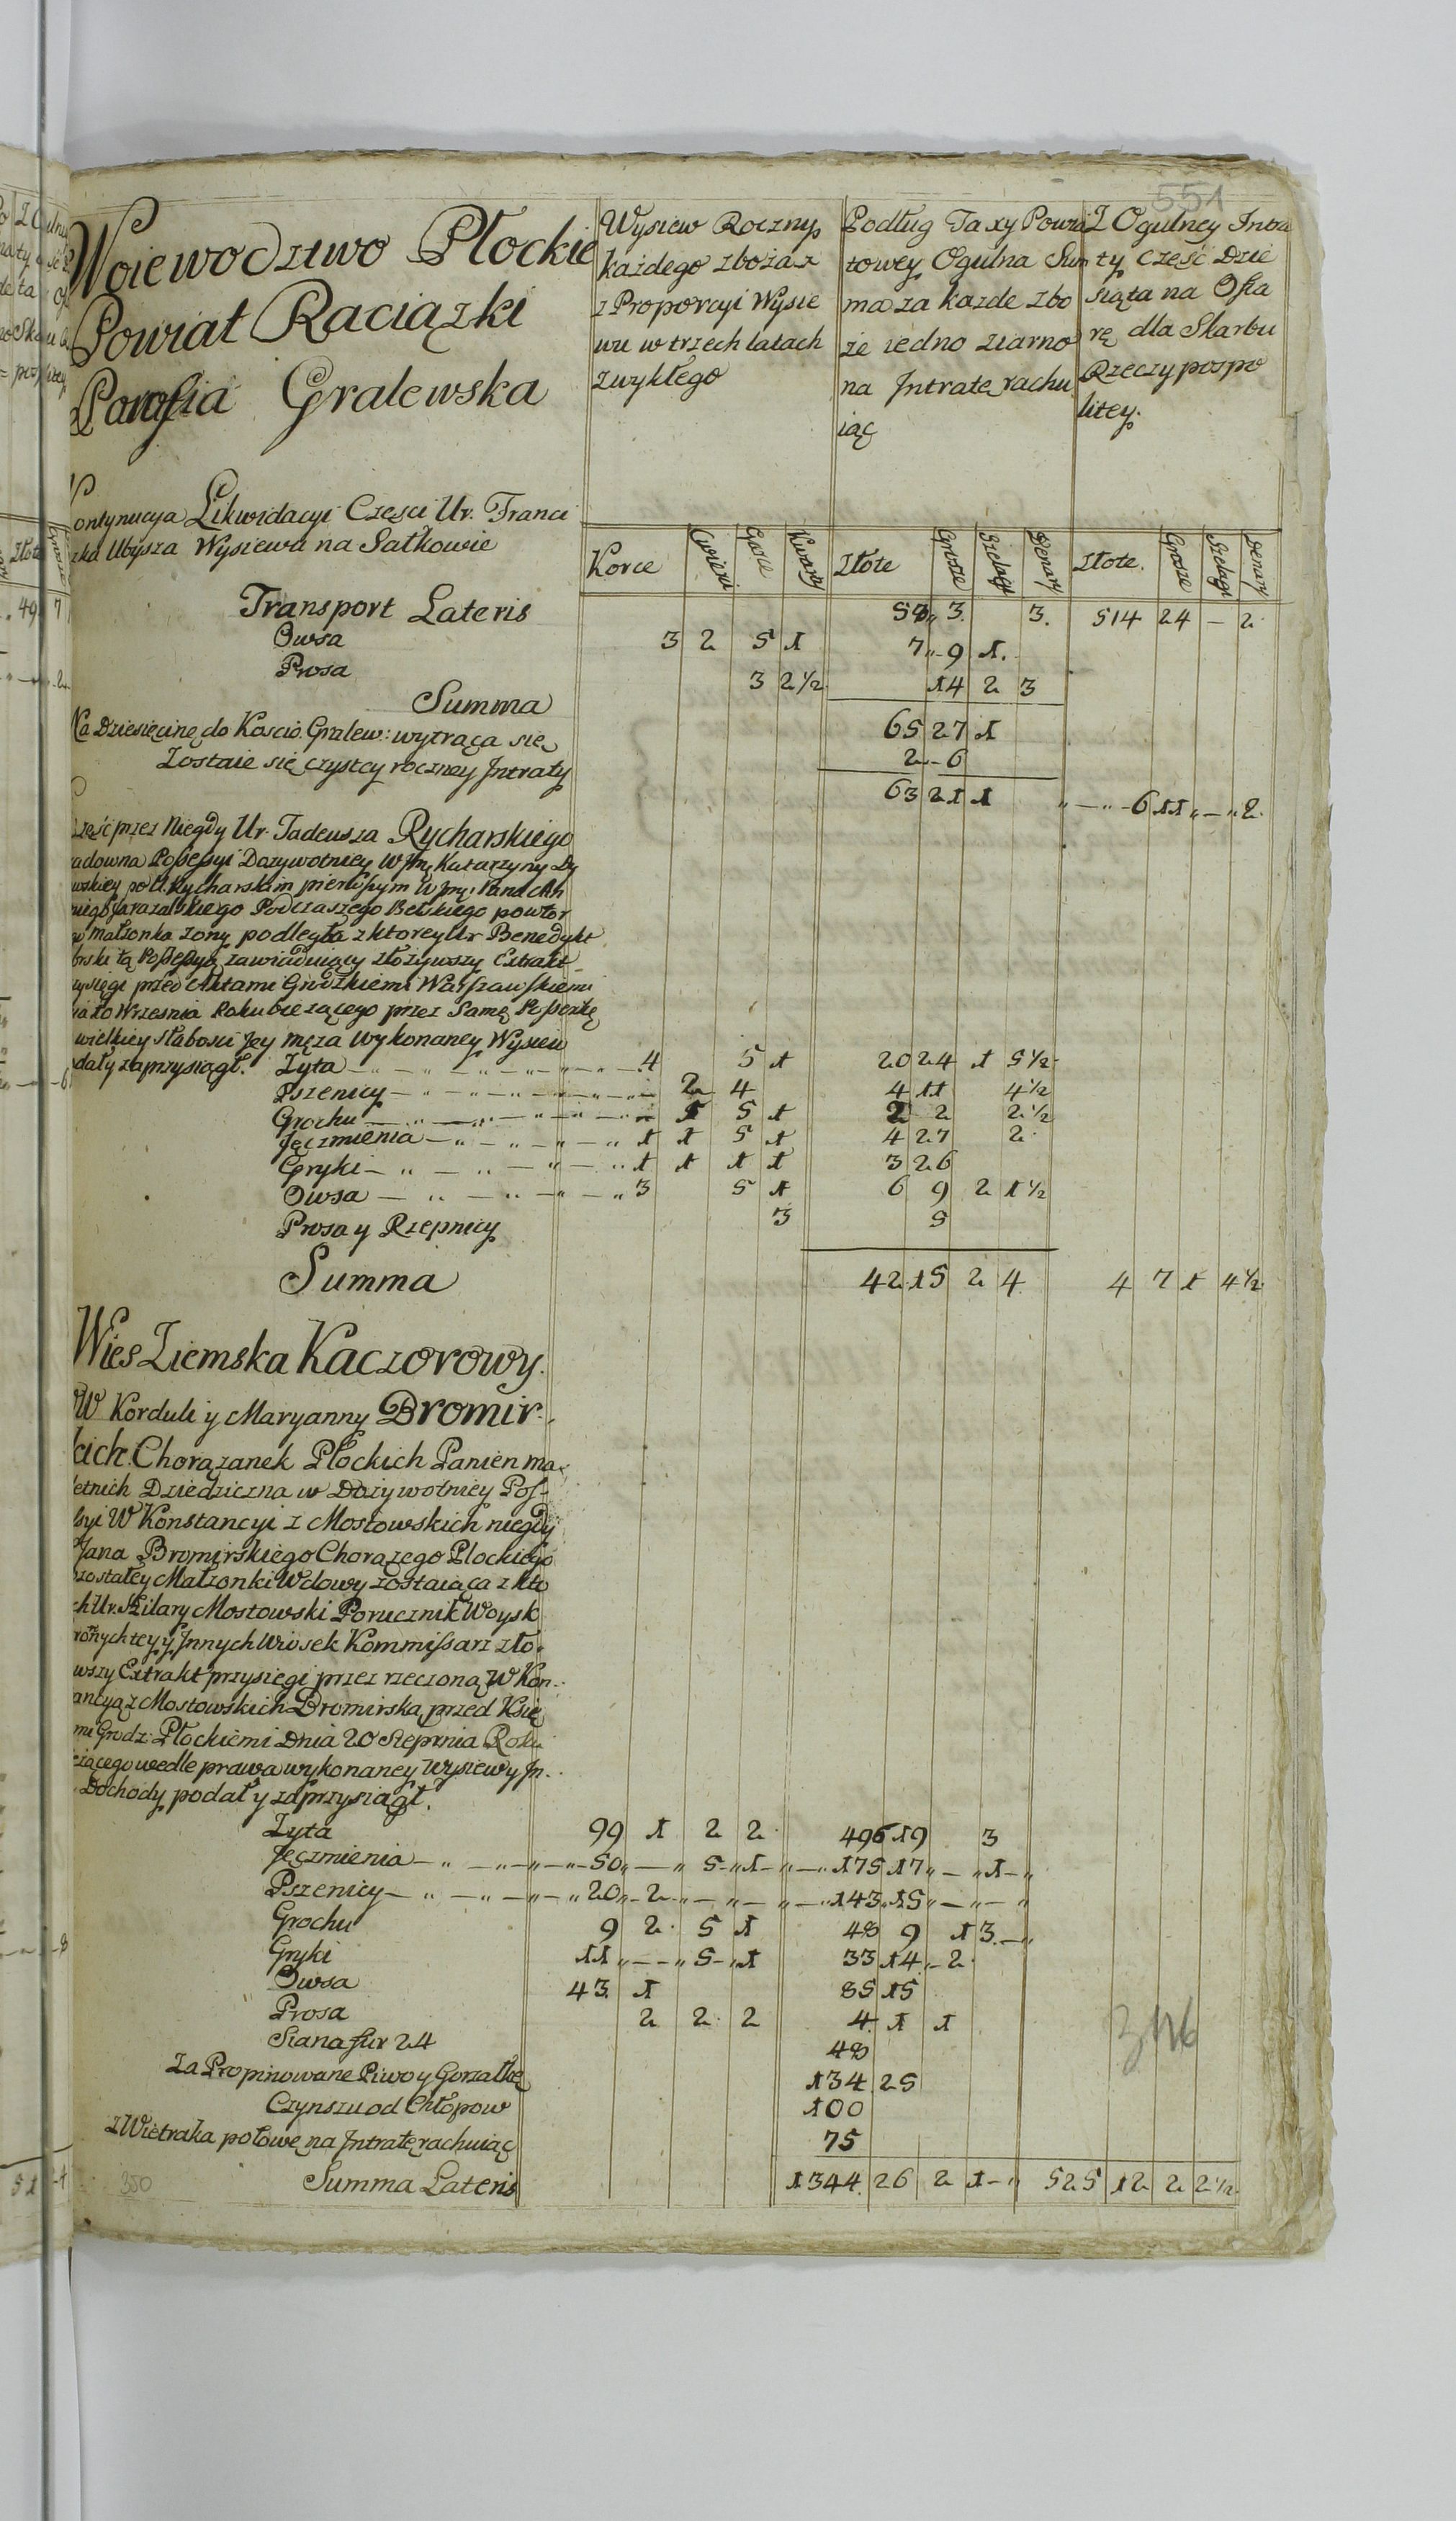 551
Woiewodztwo Płockie
Powiat Raciązki
Parafia Gralewska
Wysiew Roczny
każdego zboża z
z Proporcyi Wysie
wu w trzech latach
zwykłego
Podług Taxy Powia
towey Ogulna Sum
ma za kazde zbo
że iedno ziarno
na Intratę rachu
iąc
Z Ogulney Intra
ty część Dzie
siąta na Ofia
rę dla Skarbu
Rzeczypospo
litey.
ontynucya Likwidacyi Częsci Ur. Franci
zka Ubysza Wysiewa na Satkowie
Korce Cwierci Garce Kwarty Złote Grosze Szelągi Denary Złote. Grosze Szelągi Denary
Transport Lateris 58 3. 3. 514 24 - 2
Owsa 3 2 5 1 7 9 1.
Prosa 3 2½ 14 2 3
Summa 65 27 1
Na Dziesięcinę do Koscio. Gralew: wytrąca się 2 - 6
Zostaie się czystey roczney Intraty 63 21 1 " - " - 6 11 " - " 2.
zęść przez Niegdy Ur. Tadeusza Rycharskiego
adowna Possessyi Dozywotniey W Jmę Katarzyny Dy
wskiey po U. Rycharskim pierwszym W Jmci Pana An
niego Jarazalskiego Podczaszego Belskiego powtor
małżonka zony podległa z ktorey Ur Benedykt
orski tą Possessyą zawiaduiący złożywszy Extrakt
zysięgi przed Aktami Grodzkiemi Warszawskiemi
ia 10 Wrzesnia Roku bieżącego przez Samę Possesorkę
wielkiey słabosci Jey męża wykonaney Wysiew
dały zaprzysiągł. Zyta - " - 4 5 1 20 24 1 5½
Pszenicy - " - 2 4 4 11 4½
Grochu - " - 1 5 1 2 2 2½
Jęczmienia - " - 1 1 5 1 4 27 2
Gryki - " - 1 1 1 1 3 26
Owsa - " - 3 5 1 6 9 2 1½
Prosa y Rzepnicy 3 5
Summa 42 15 2 4 4 7 1 4½
Wies Ziemska Kaczorowy.
W Korduli y Maryanny Bromir.
kich Chorązanek Płockich Panien ma
letnich Dziedziczna w Dozywotniey Pos
ssyi W Konstancyi z Mostowskich niegdy
Jana Bromirskiego Chorązego Płockiego
zostałey Małżonki Wdowy zostaiąca z kto
ch Ur. Hilary Mostowski Porucznik Woysk
ronnych tey y Innych Wiosek Kommissarz zło.
wszy Extrakt przysięgi przez rzeczoną W Kon
ancyą z Mostowskich Bromirską przed Xię
mi Grodz: Płockiemi Dnia 20 Sierpnia Roku
eżącego wedle prawa wykonaney Wysiewy In.
Dochody podał y zaprzysiągł.
Zyta 99 1 2 2 496 19 3
Jęczmienia - " - 50 " - " 5 - " 1 - " - " 175 17 " - " 1 - "
Pszenicy - " - 20 " - 2 " - " - " - " 143 15 " - " - "
Grochu 9 2 5 1 48 9 1 3 - "
Gryki 11 " - - " 5 - " 1 33 14 " - 2
Owsa 43 1 85 15
Prosa 2 2 2 4 1 1
Siana fur 24 48
Za Propinowane Piwo y Gorzałkę 134 25
Czynszu od Chłopow 100
z Wietraka połowę na Intratę rachuiąc 75
Summa Lateris 1344 26 2 1 - " 525 12 2 2½
350